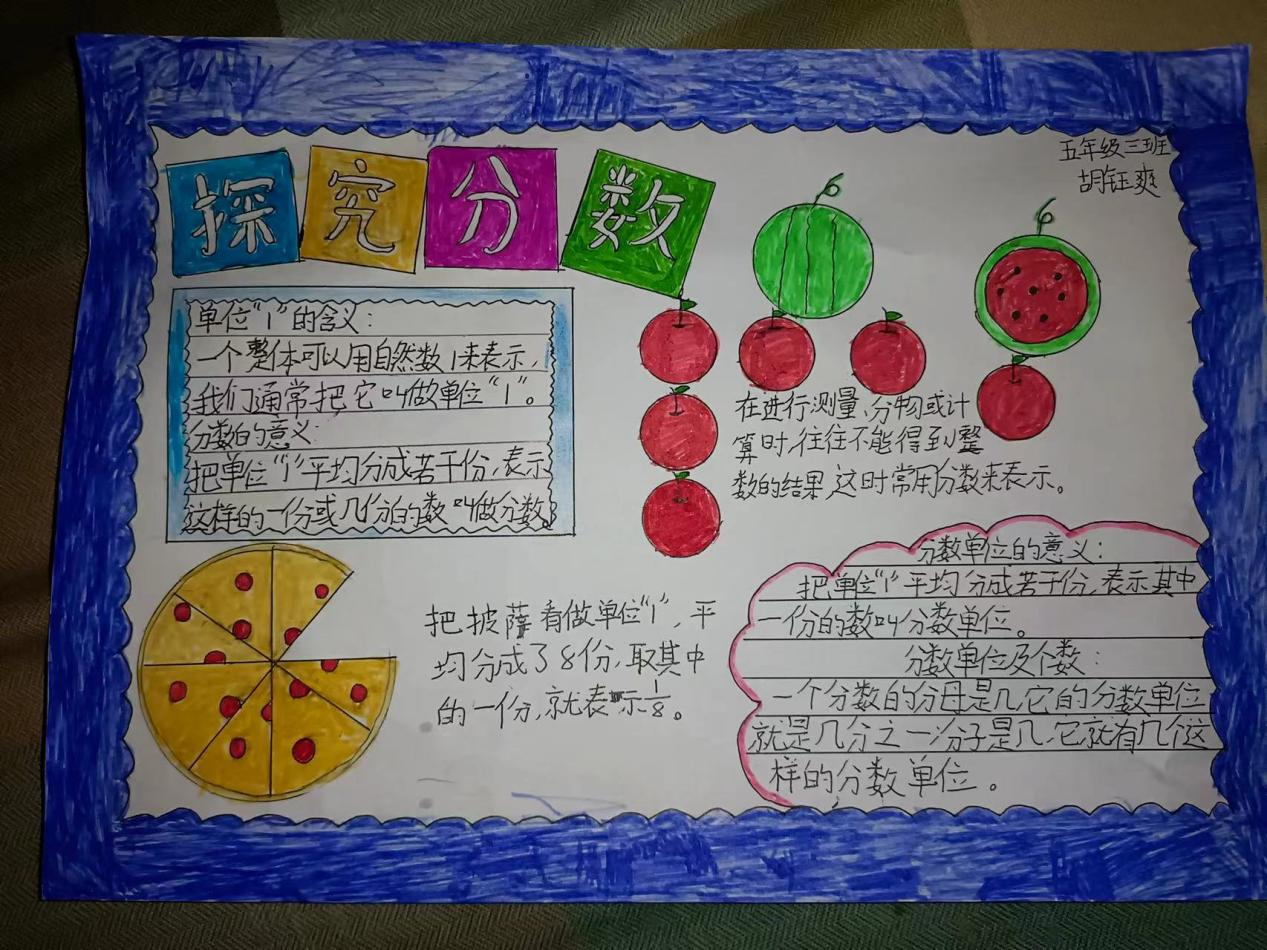 探究分数
五年级三班
胡钰爽
单位“1”的含义：
一个整体可以用自然数1来表示，
我们通常把它叫做单位“1”。
分数的意义：
把单位“1”平均分成若干份，表示
这样的一份或几份的数叫做分数。
在进行测量、分物或计
算时，往往不能得到整
数的结果，这时常用分数来表示。
把披萨看做单位“1”，平
均分成了8份，取其中
的一份，就表示1/8。
分数单位的意义：
把单位“1”平均分成若干份，表示其中
一份的数叫分数单位。
分数单位及个数：
一个分数的分母是几，它的分数单位
就是几分之一；分子是几，它就有几个这
样的分数单位。